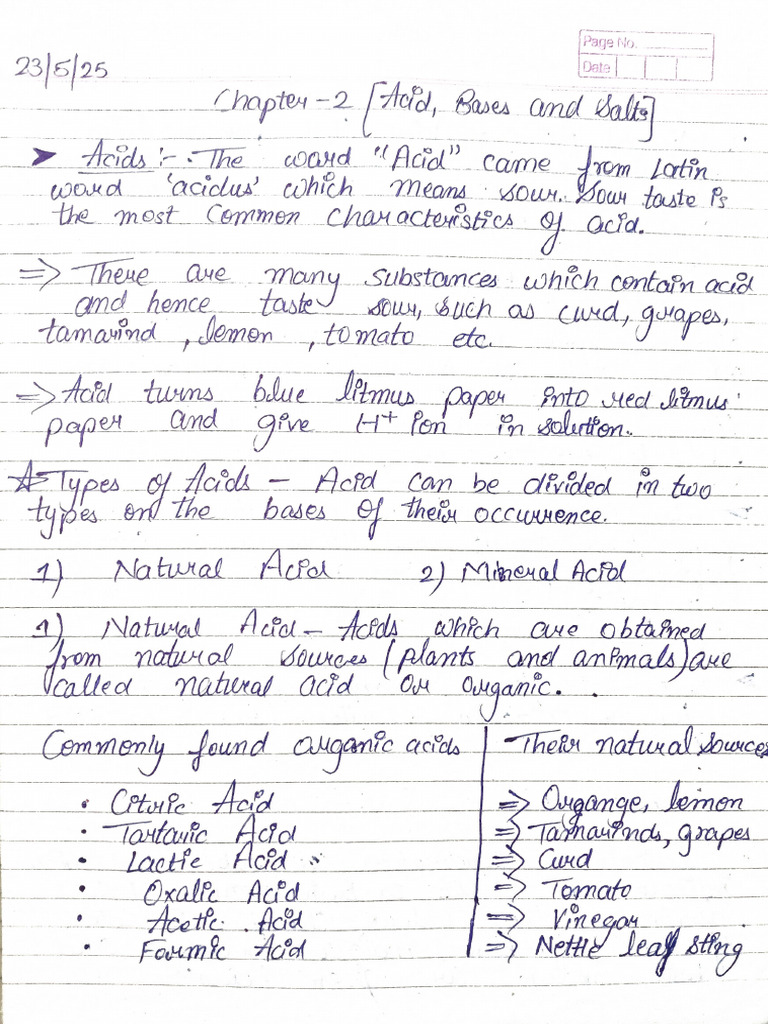 Page No.
Date
23/5/25
Chapter - 2 [Acid, Bases and Salts]
➤ Acids :- The word "Acid" came from Latin
word 'acidus' which means sour. Sour taste is
the most common characteristics of acid.
=> There are many substances which contain acid
and hence taste sour, such as curd, grapes,
tamarind, lemon, tomato etc.
=> Acid turns blue litmus paper into red litmus
paper and give H+ ion in solution.
☆ Types of Acids - Acid can be divided in two
types on the bases of their occurrence.
1) Natural Acid 2) Mineral Acid
1) Natural Acid - Acids which are obtained
from natural sources (plants and animals) are
called natural acid or organic.
Commonly found organic acids | Their natural sources
• Citric Acid => Organge, lemon
• Tartaric Acid => Tamarinds, grapes
• Lactic Acid => Curd
• Oxalic Acid => Tomato
• Acetic Acid => Vinegar
• Formic Acid => Nettle leaf sting